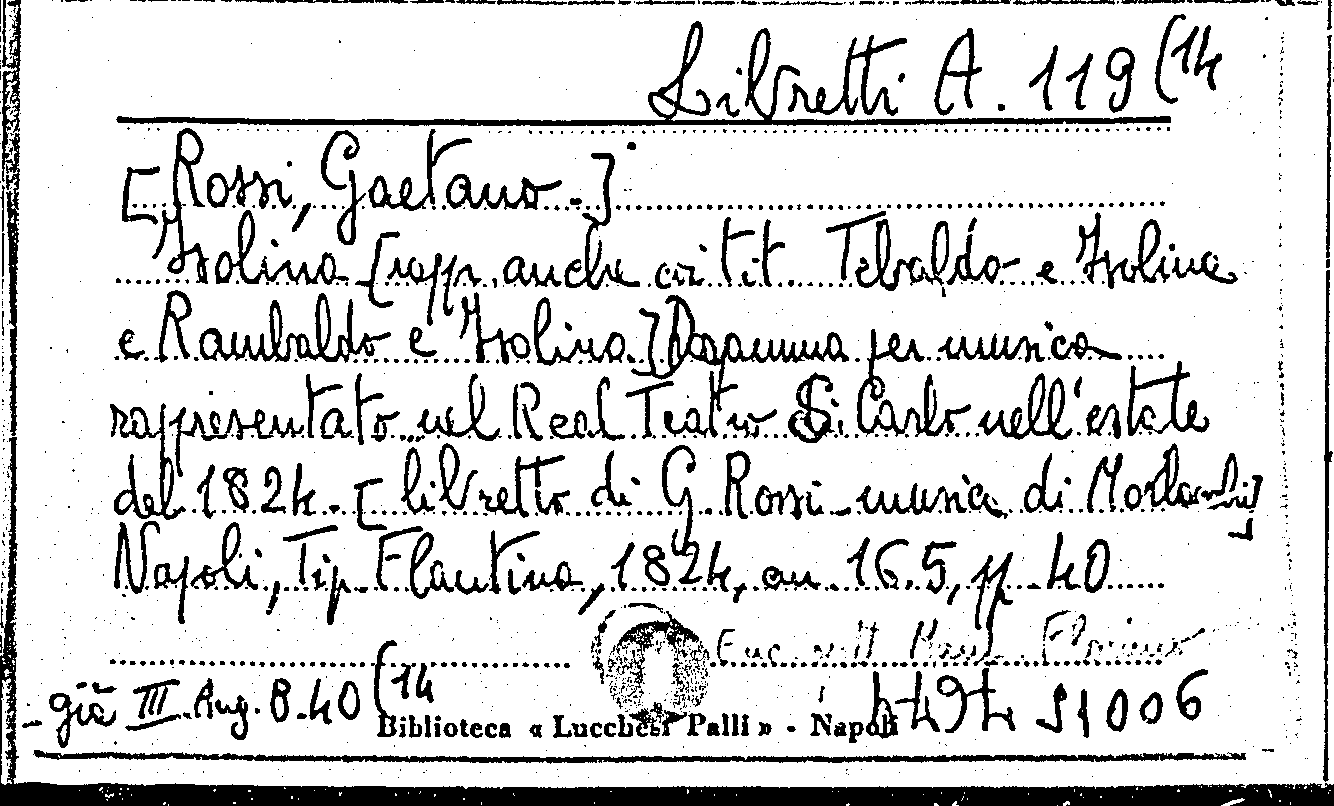 Libretti A. 119 (14
[Rossi, Gaetano.]
Isolina [rappr. anche col tit. Tebaldo e Isolina
e Rambaldo e Isolina] Dramma per musica
rappresentato nel Real Teatro S. Carlo nell'estate
del 1824. [libretto di G. Rossi - musica di Morlacchi]
Napoli, Tip. Flautina, 1824, cm. 16.5, pp. 40
Florimo
- già III. Aug. 8.40 (14
Biblioteca « Lucchesi Palli » - Napoli
51006